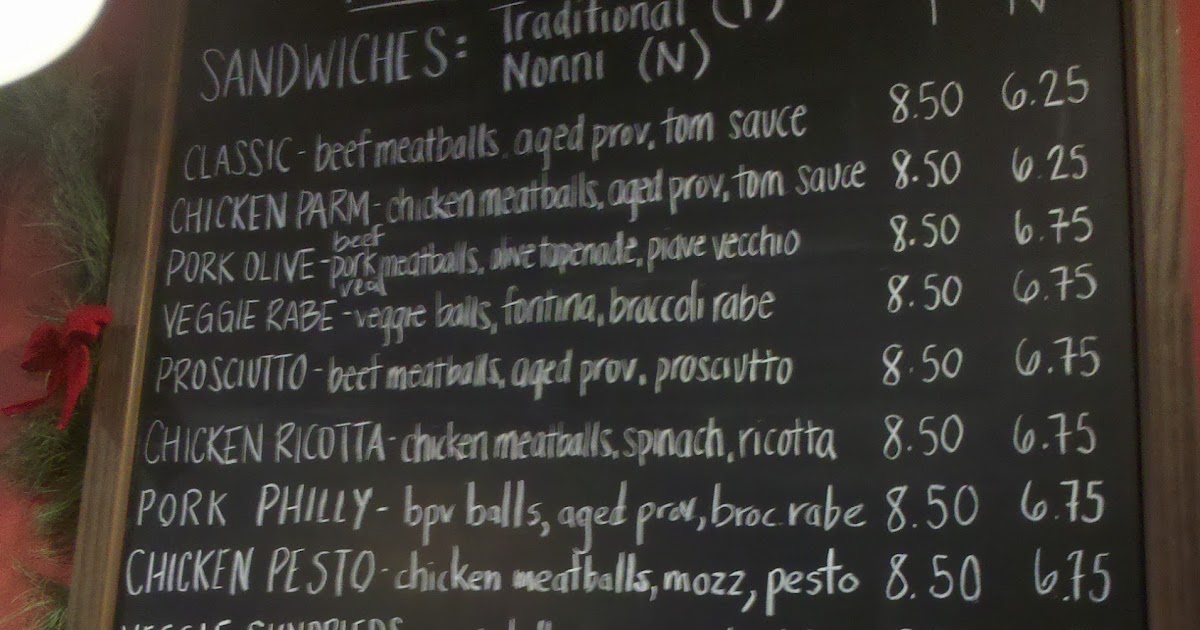 Traditional (T) T N
SANDWICHES: Nonni (N)
CLASSIC - beef meatballs, aged prov, tom sauce 8.50 6.25
CHICKEN PARM - chicken meatballs, aged prov, tom sauce 8.50 6.25
beef
PORK OLIVE - pork meatballs, olive tapenade, piave vecchio 8.50 6.75
veal
VEGGIE RABE - veggie balls, fontina, broccoli rabe 8.50 6.75
PROSCIUTTO - beef meatballs, aged prov, prosciutto 8.50 6.75
CHICKEN RICOTTA - chicken meatballs, spinach, ricotta 8.50 6.75
PORK PHILLY - bpv balls, aged prov, broc. rabe 8.50 6.75
CHICKEN PESTO - chicken meatballs, mozz, pesto 8.50 6.75